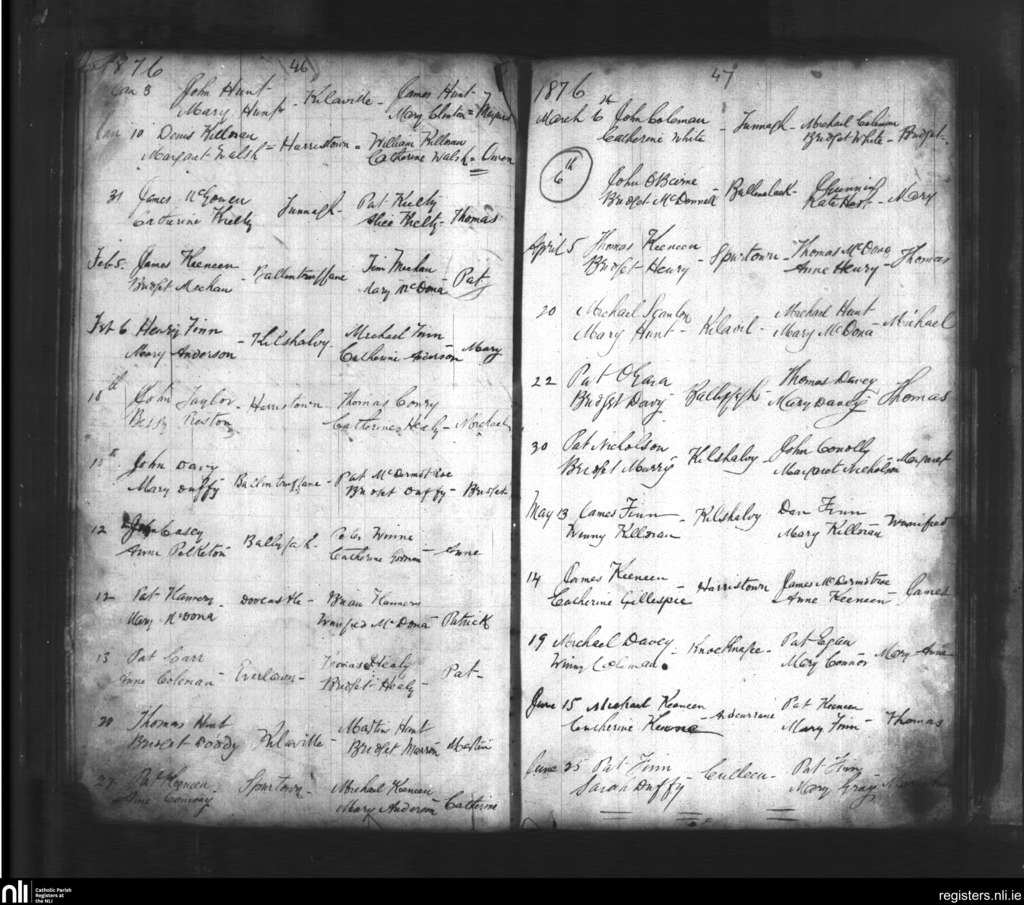 1876 46
Jan 3 John Hunt - Kilaville - James Hunt
Mary Hunt Mary Clinton =
Jan 10 Denis Killoran = Harristown = William Killoran
Margaret Walsh Catherine Walsh = Owen
31 James McGowen Tunnagh - Pat Kielty
Catherine Kielty Alice Kielty - Thomas
Feb 5. James Keeneen - Ballintruffane Jim Meehan
Bridget Meehan Mary McDona Pat
Feb 6 Henry Finn - Kilshalvy - Michael Finn
Mary Anderson Catherine Anderson - Mary
10th John Taylor - Harristown - Thomas Conry
Bessy Catherine Healy - Michael
11th John Davy - Ballintruffane - Pat McDermotroe
Mary Duffy Bridget Duffy - Bridget
12 John Casey Ballyfah -
Anne Catherine - Anne
12 Pat Flannery - - Brian Flannery
Mary McDona Winifred McDona - Patrick
13 Pat Carr - - Thomas Healy
Anne Coleman Bridget Healy - Pat -
20 Thomas Hunt Kilaville - Martin Hunt
Bridget Bridget - Martin
27 Pat Keeneen - Spurtown - Michael Keeneen
Anne Conway Mary Anderson Catherine
1876 47
March 6th John Coleman - Tunnagh - Michael Coleman
Catherine White Bridget White - Bridget
6th John O'Beirne - -
Bridget McDonnell Kate - Mary
April 5 Thomas Keeneen - Spurtown - Thomas McDona - Thomas
Bridget Henry Anne Henry
20 Michael Scanlon - Kilavil - Michael Hunt - Michael
Mary Hunt Mary McDona
22 Pat O'Gara Thomas Davey
Bridget Davy Mary Davey Thomas
30 Pat Nicholson - Kilshalvy - John Conolly
Bridget Murry Margaret Nicholson - Margaret
May 13 James Finn - Kilshalvy Dan Finn
Winny Killoran Mary Killoran Winnifred
14 James Keeneen - Harristown James McDermotroe - James
Catherine Gillespie Anne Keeneen
19 Michael Davey - Knocknafee - Pat Egan
Winny Coleman Mary Connor Mary Anne
June 15 Michael Keeneen - Pat Keeneen
Catherine Mary Finn - Thomas
June 25 Pat Finn - Culleen - Pat Finn
Sarah Duffy Mary Gray -
nli Catholic Parish
Registers at
the NLI
registers.nli.ie